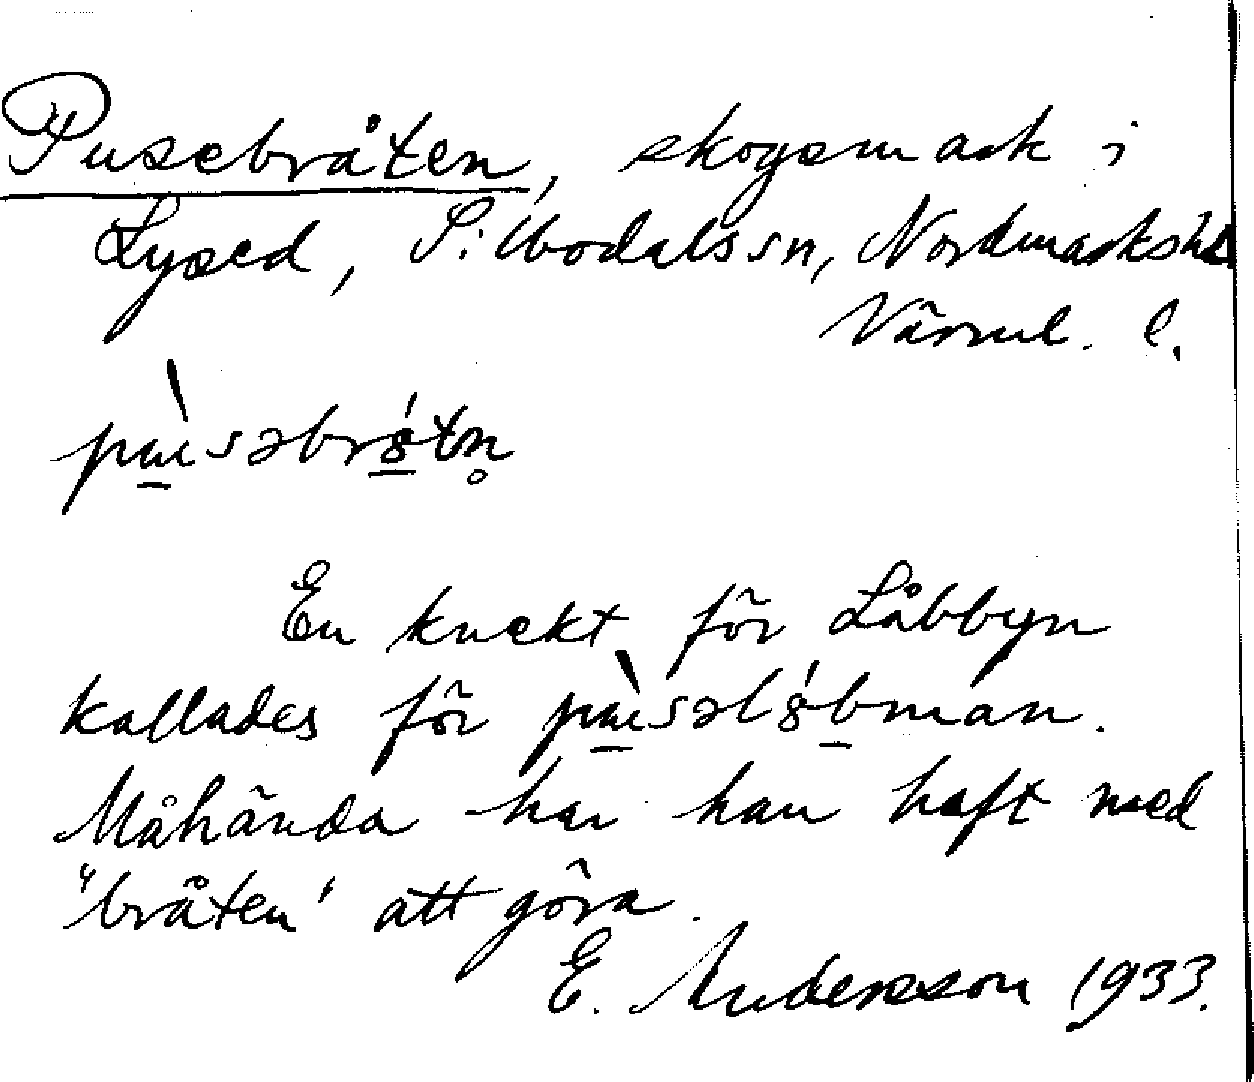 Pusebråten, skogsmark i
Lysed, S: Ubodalssn, Nordmarkshd
Värml. l.
pùsəbrǻtn̥
En knekt för Låbbyn
kallades för pùsəlǻbman.
Måhända har han haft med
"bråten' att göra.
E. Andersson 1933.